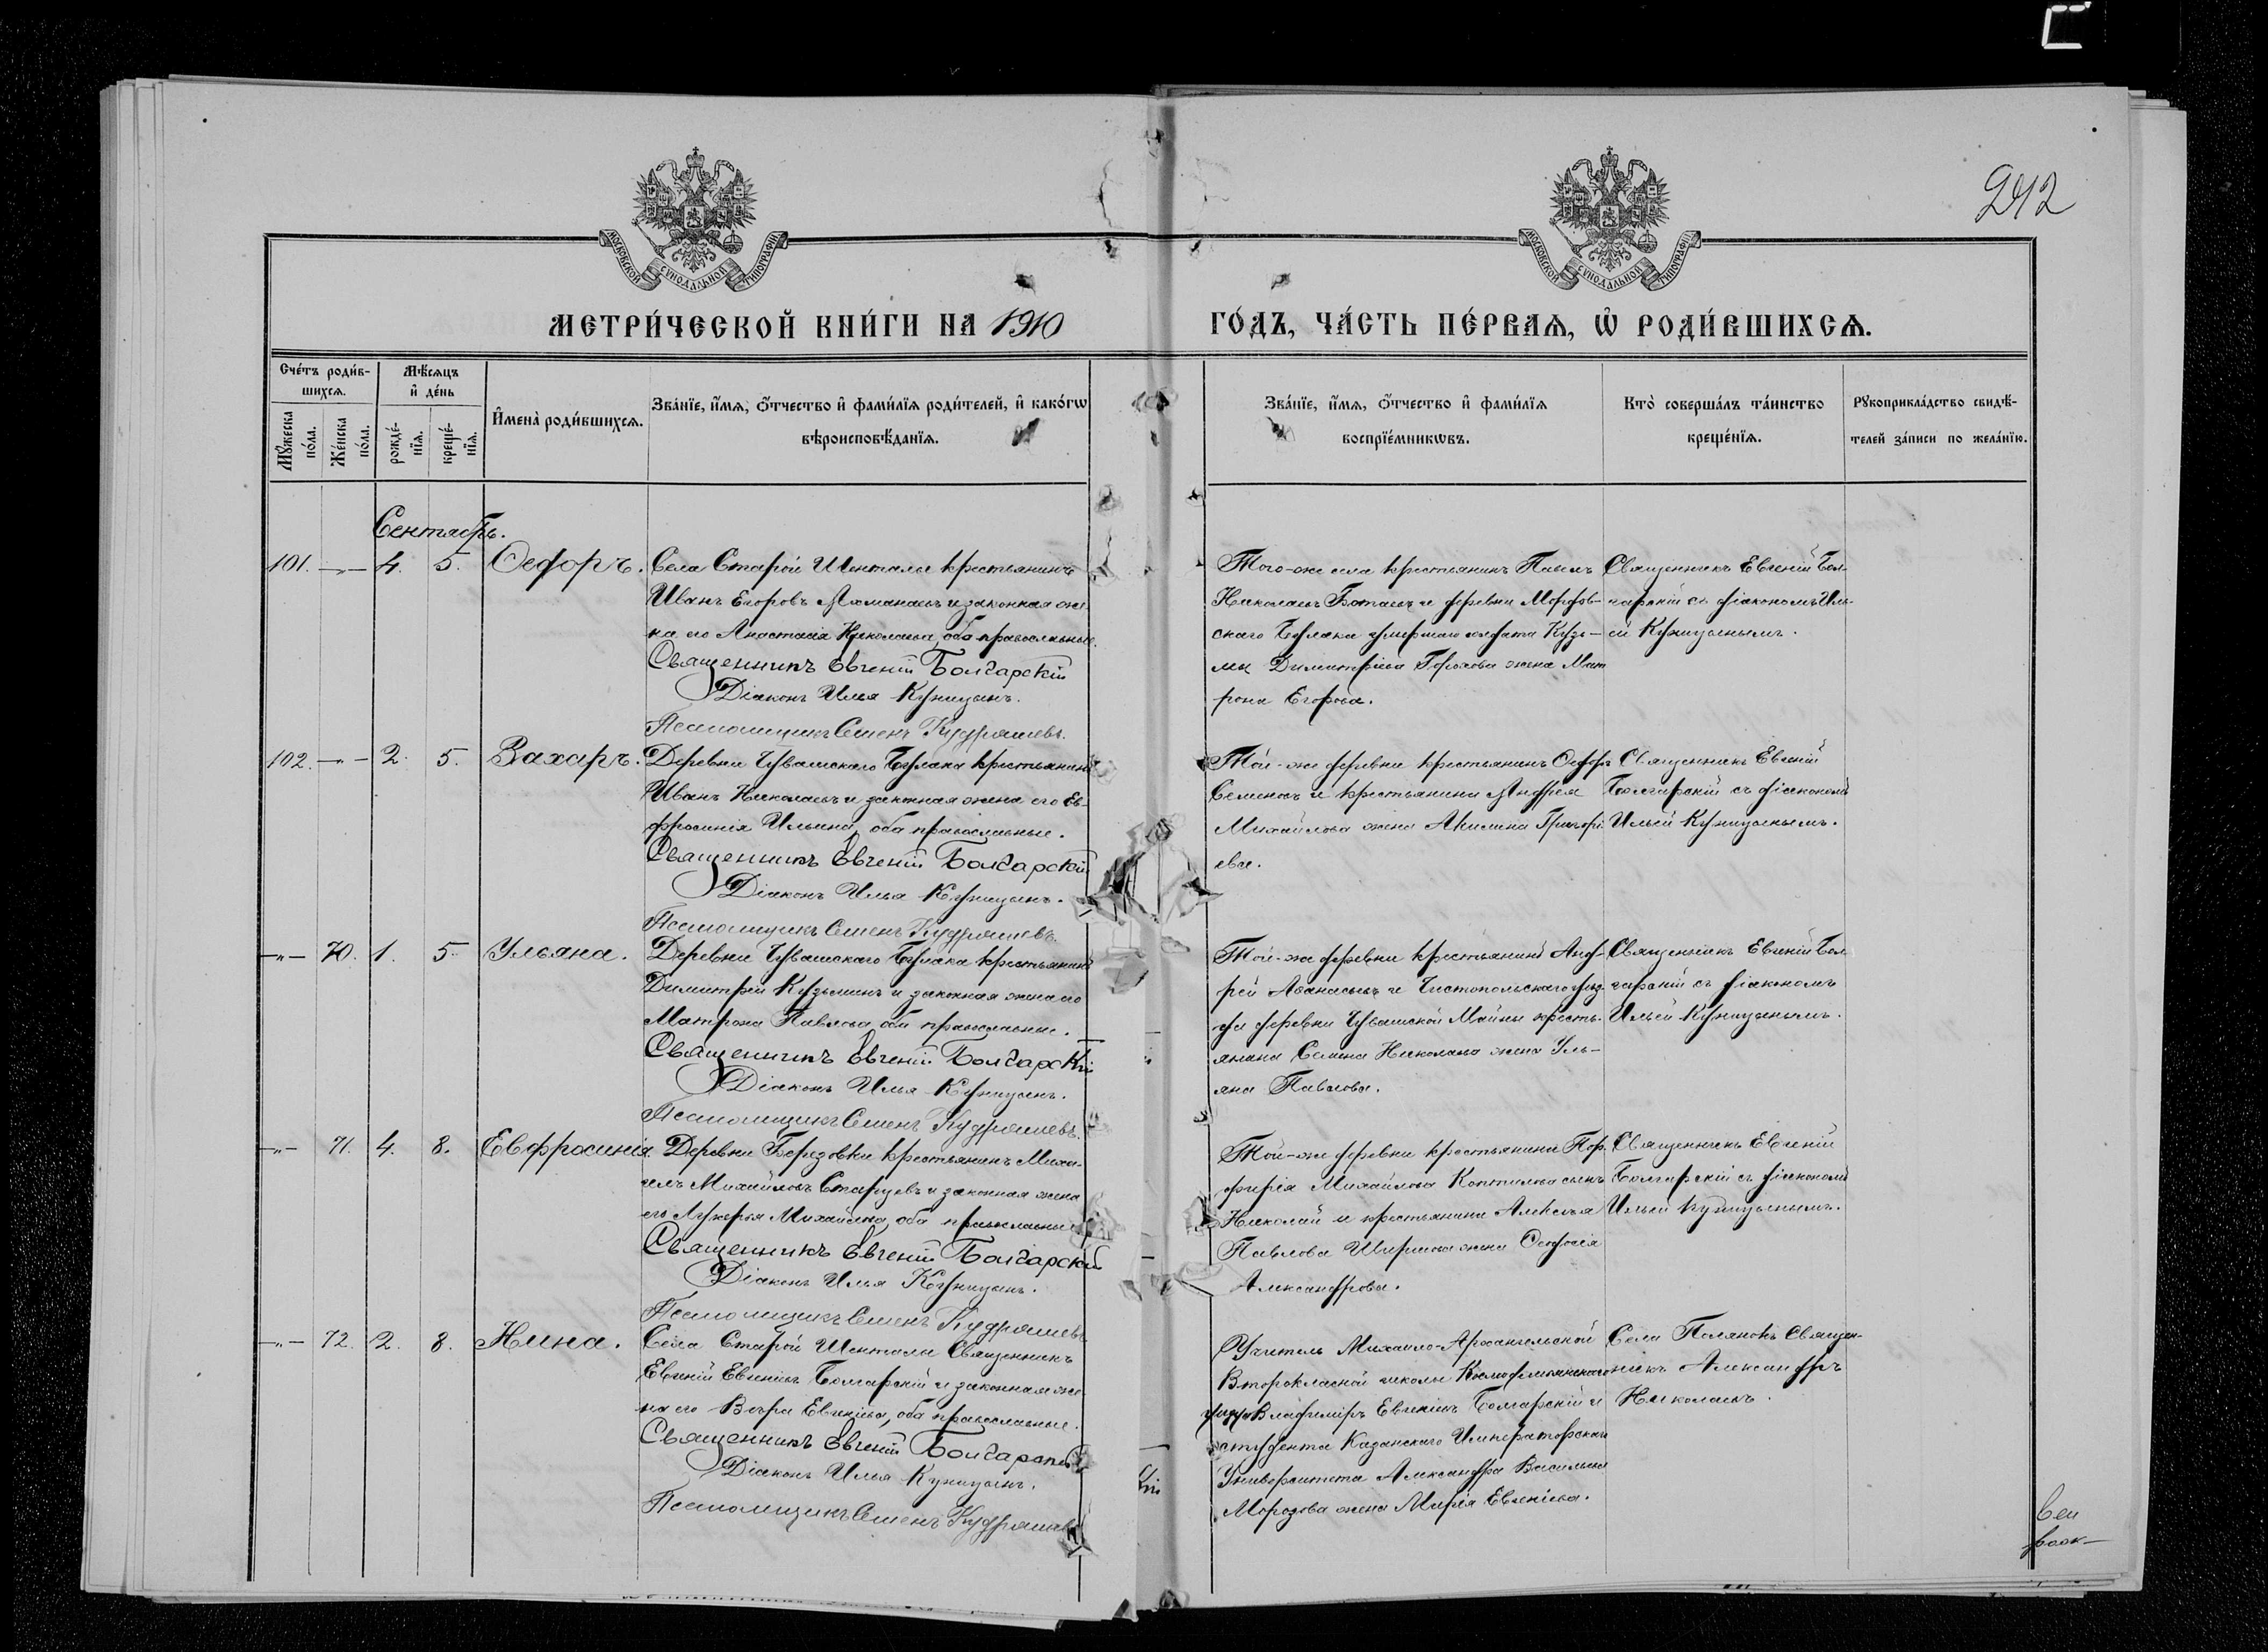 242
МОСКОВСКОЙ СѴНОДАЛЬНОЙ ТИПОГРАФІИ
МОСКОВСКОЙ СѴНОДАЛЬНОЙ ТИПОГРАФІИ
МЕТРИ́ЧЕСКОЙ КНИ́ГИ НА 1910
ГО́ДЪ, ЧА́СТЬ ПЕ́РВАѦ, Ѡ҆ РОДИ́ВШИХСѦ.
Сче́тъ роди́в-
шихсѧ.
Мѣ́сѧцъ
и҆ де́нь
Мꙋ́жеска
по́ла.
Же́нска
по́ла.
рожде́-
нїѧ.
креще́-
нїѧ.
И҆мена̀ роди́вшихсѧ.
Зва́нїе, и҆́мѧ, ѻ҆́тчество и҆ фами́лїѧ роди́телей, и҆ како́гѡ
вѣроисповѣ́данїѧ.
Зва́нїе, и҆́мѧ, ѻ҆́тчество и҆ фами́лїѧ
воспрїе́мникѡвъ.
Кто̀ соверша́лъ та́инство
креще́нїѧ.
Рꙋкоприкла́дство свидѣ́-
телей за́писи по жела́нїю.
Сентябрь.
101. —„— 4. 5. Ѳеодоръ.
Села Старой Шенталы крестьянинъ
Иванъ Егоровъ и законная же-
на его Анастасія Николаева, оба православные.
Священникъ Евгеній Болгарскій
Діаконъ Илья Куницынъ.
Псаломщикъ Семенъ Кудряшевъ.
Того-же села крестьянинъ Павелъ
Николаевъ и деревни Мордов-
скаго Булака умершаго солдата Кузь-
мы Димитріева Горохова жена Мат
рона Егорова.
Священникъ Евгеній Бол-
гарскій съ діакономъ Иль-
ей Куницынымъ.
102. —„— 2. 5. Захаръ.
Деревни Чувашскаго Булака крестьянинъ
Иванъ Николаевъ и законная жена его Ев-
фросинія Ильина, оба православные.
Священникъ Евгеній Болгарскій
Діаконъ Илья Куницынъ.
Псаломщикъ Семенъ Кудряшевъ.
Той-же деревни крестьянинъ Ѳеодоръ
Семеновъ и крестьянина Андрея
Михайлова жена Акилина Григорі-
ева.
Священникъ Евгеній
Болгарскій съ діакономъ
Ильей Куницынымъ.
—„— 70. 1. 5. Ульяна.
Деревни Чувашскаго Булака крестьянинъ
Димитрій Кузьминъ и законная жена его
Матрона Павлова, оба православные.
Священникъ Евгеній Болгарскій
Діаконъ Илья Куницынъ.
Псаломщикъ Семенъ Кудряшевъ.
Той-же деревни крестьянинъ Анд-
рей Аѳанасьевъ и Чистопольскаго уѣз-
да деревни Чувашской Майны кресть-
янина Семена Николаева жена Уль-
яна Павлова.
Священникъ Евгеній Бол-
гарскій съ діакономъ
Ильей Куницынымъ.
—„— 71. 4. 8. Евфросинія.
Деревни Березовки крестьянинъ Миха-
илъ Михайловъ Старцевъ и законная жена
его Лукерья Михайлова, оба православные
Священникъ Евгеній Болгарскій
Діаконъ Илья Куницынъ.
Псаломщикъ Семенъ Кудряшевъ
Той-же деревни крестьянина Пор-
фирія Михайлова Коптилова сынъ
Николай и крестьянина Алексѣя
Павлова жена Ѳеодосія
Александрова.
Священникъ Евгеній
Болгарскій съ діакономъ
Ильей Куницынымъ.
—„— 72. 2. 8. Нина.
Села Старой Шенталы Священникъ
Евгеній Евгеніевъ Болгарскій и законная же-
на его Вѣра Евгеніева, оба православные.
Священникъ Евгеній Болгарскій
Діаконъ Илья Куницынъ.
Псаломщикъ Семенъ Кудряшевъ
Учитель Михаило-Архангельской
Второклассной школы Козмодемьянскаго
уѣзда Владиміръ Евгеніевъ Болгарскій и
студента Казанскаго Императорскаго
Университета Александра Васильева
Морозова жена Марія Евгеніева.
Села Полянокъ Священ-
никъ Александръ
Николаевъ.